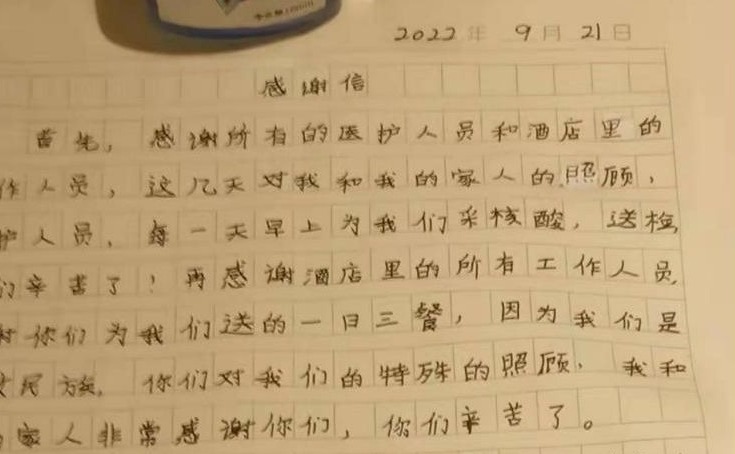 2022年 9月 21日
感谢信
首先，感谢所有的医护人员和酒店里的
作人员，这几天对我和我的家人的照顾，
护人员，每一天早上为我们采核酸，送检
们辛苦了！再感谢酒店里的所有工作人员，
谢你们为我们送的一日三餐，因为我们是
民族，你们对我们的特殊的照顾，我和
家人非常感谢你们，你们辛苦了。